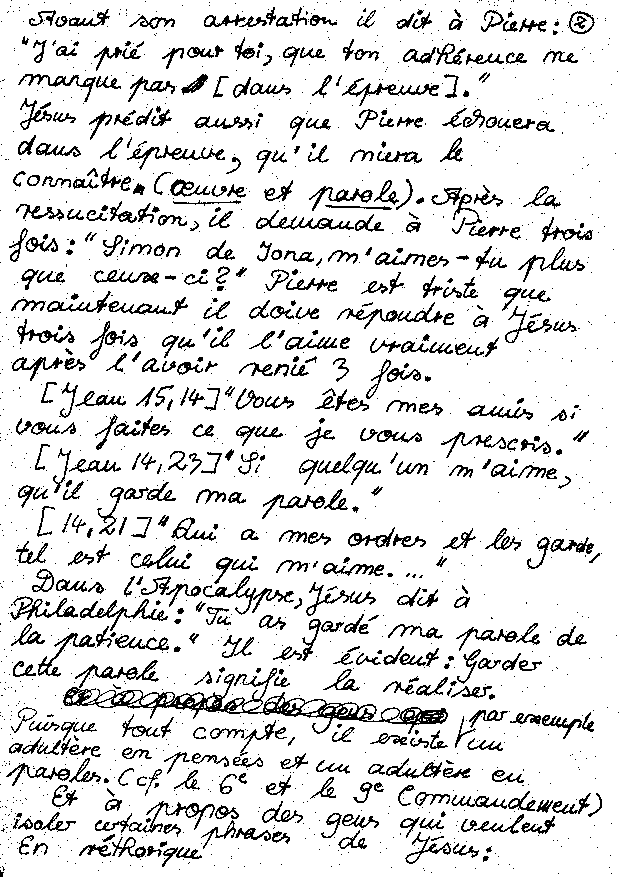 Avant son arrestation il dit à Pierre: 2
"J'ai prié pour toi, que ton adhérence ne
manque pas [dans l'épreuve]."
Jésus prédit aussi que Pierre échouera
dans l'épreuve, qu'il niera le
connaître. (œuvre et parole). Après la
ressucitation, il demande à Pierre trois
fois: "Simon de Jona, m'aimes-tu plus
que ceux-ci?" Pierre est triste que
maintenant il doive répondre à Jésus
trois fois qu'il l'aime vraiment
après l'avoir renié 3 fois.
[Jean 15,14] "Vous êtes mes amis si
vous faites ce que je vous prescris."
[Jean 14,23] "Si quelqu'un m'aime,
qu'il garde ma parole."
[14,21] "Qui a mes ordres et les garde,
tel est celui qui m'aime. ..."
Dans l'Apocalypse, Jésus dit à
Philadelphie: "Tu as gardé ma parole de
la patience." Il est évident: Garder
cette parole signifie la réaliser.
à propos des gens
Puisque tout compte, il existe par exemple un
adultère en pensées et un adultère en
paroles. (cf. le 6e et le 9e Commandement)
Et à propos des gens qui veulent
isoler certaines phrases de Jésus:
En réthorique